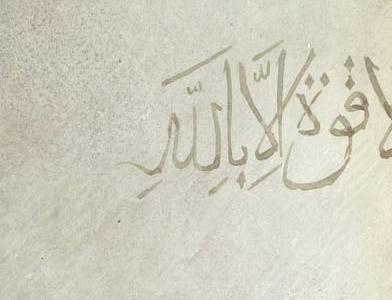 لا قوة إلَّا بِاللَّهِ